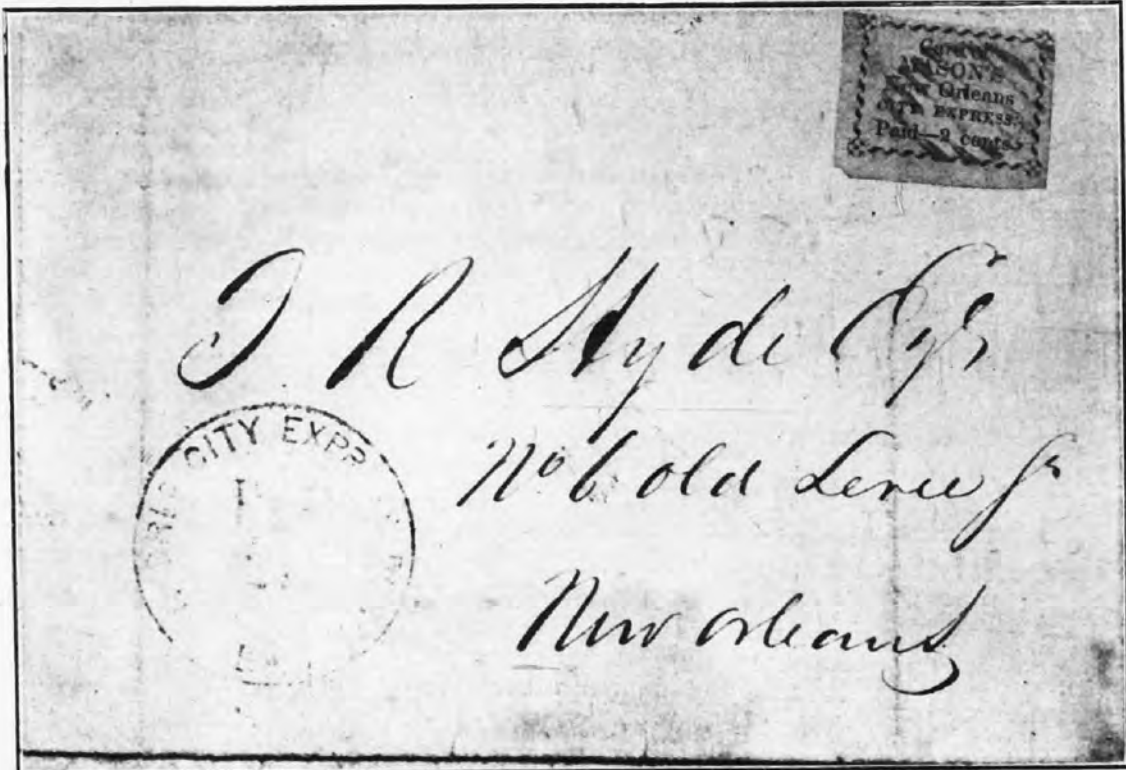 Care of
MASON'S
New Orleans
CITY EXPRESS.
Paid—2 cents.
J R Hyde Esqr
No 6 old Levee St
New Orleans
CITY EXPR